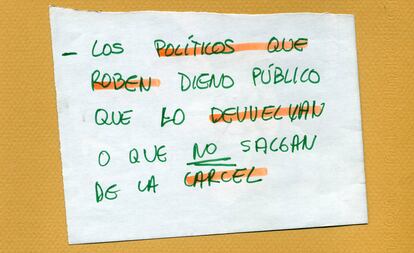 - LOS POLÍTICOS QUE
ROBEN DIENO PÚBLICO
QUE LO DEVUELVAN
O QUE NO SALGAN
DE LA CARCEL